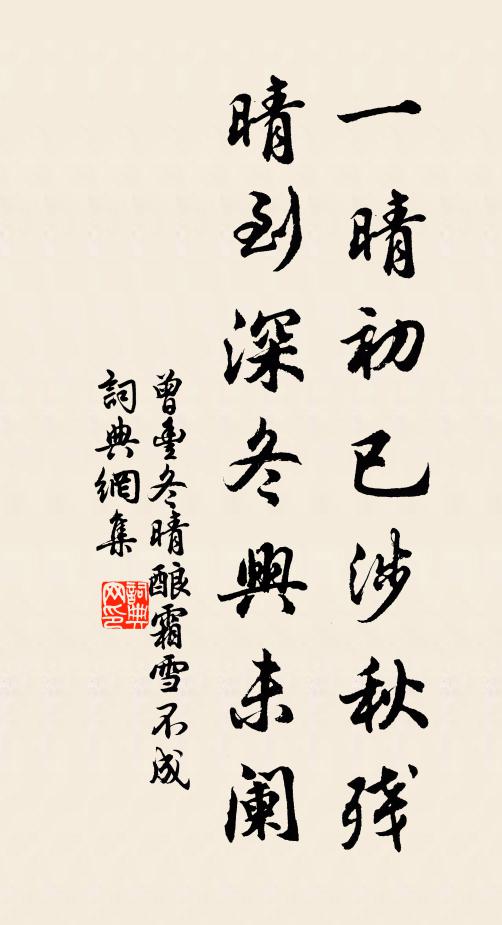 一晴初已涉秋残
晴到深冬興未阑
曾豐冬晴酿霜雪不成
詞典網集
詞典网印